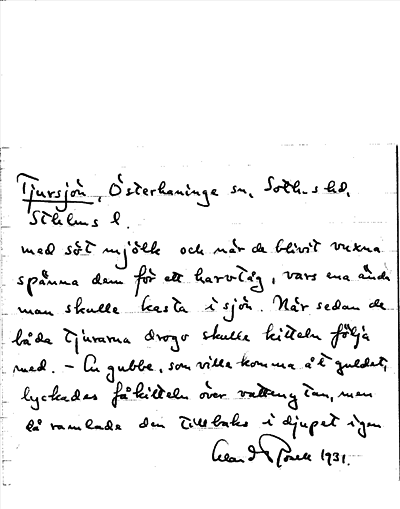 Tjursjön, Österhaninge sn, Soth.s hd,
Sthlms l.
med söt mjölk och när de blivit vuxna
spänna dem för ett harvtåg, vars ena ända
man skulle kasta i sjön. När sedan de
båda tjurarna drogo skulle kitteln följa
med. – En gubbe, som ville komma åt guldet,
lyckades få kitteln över vattenytan, men
då ramlade den tillbaka i djupet igen
1931.